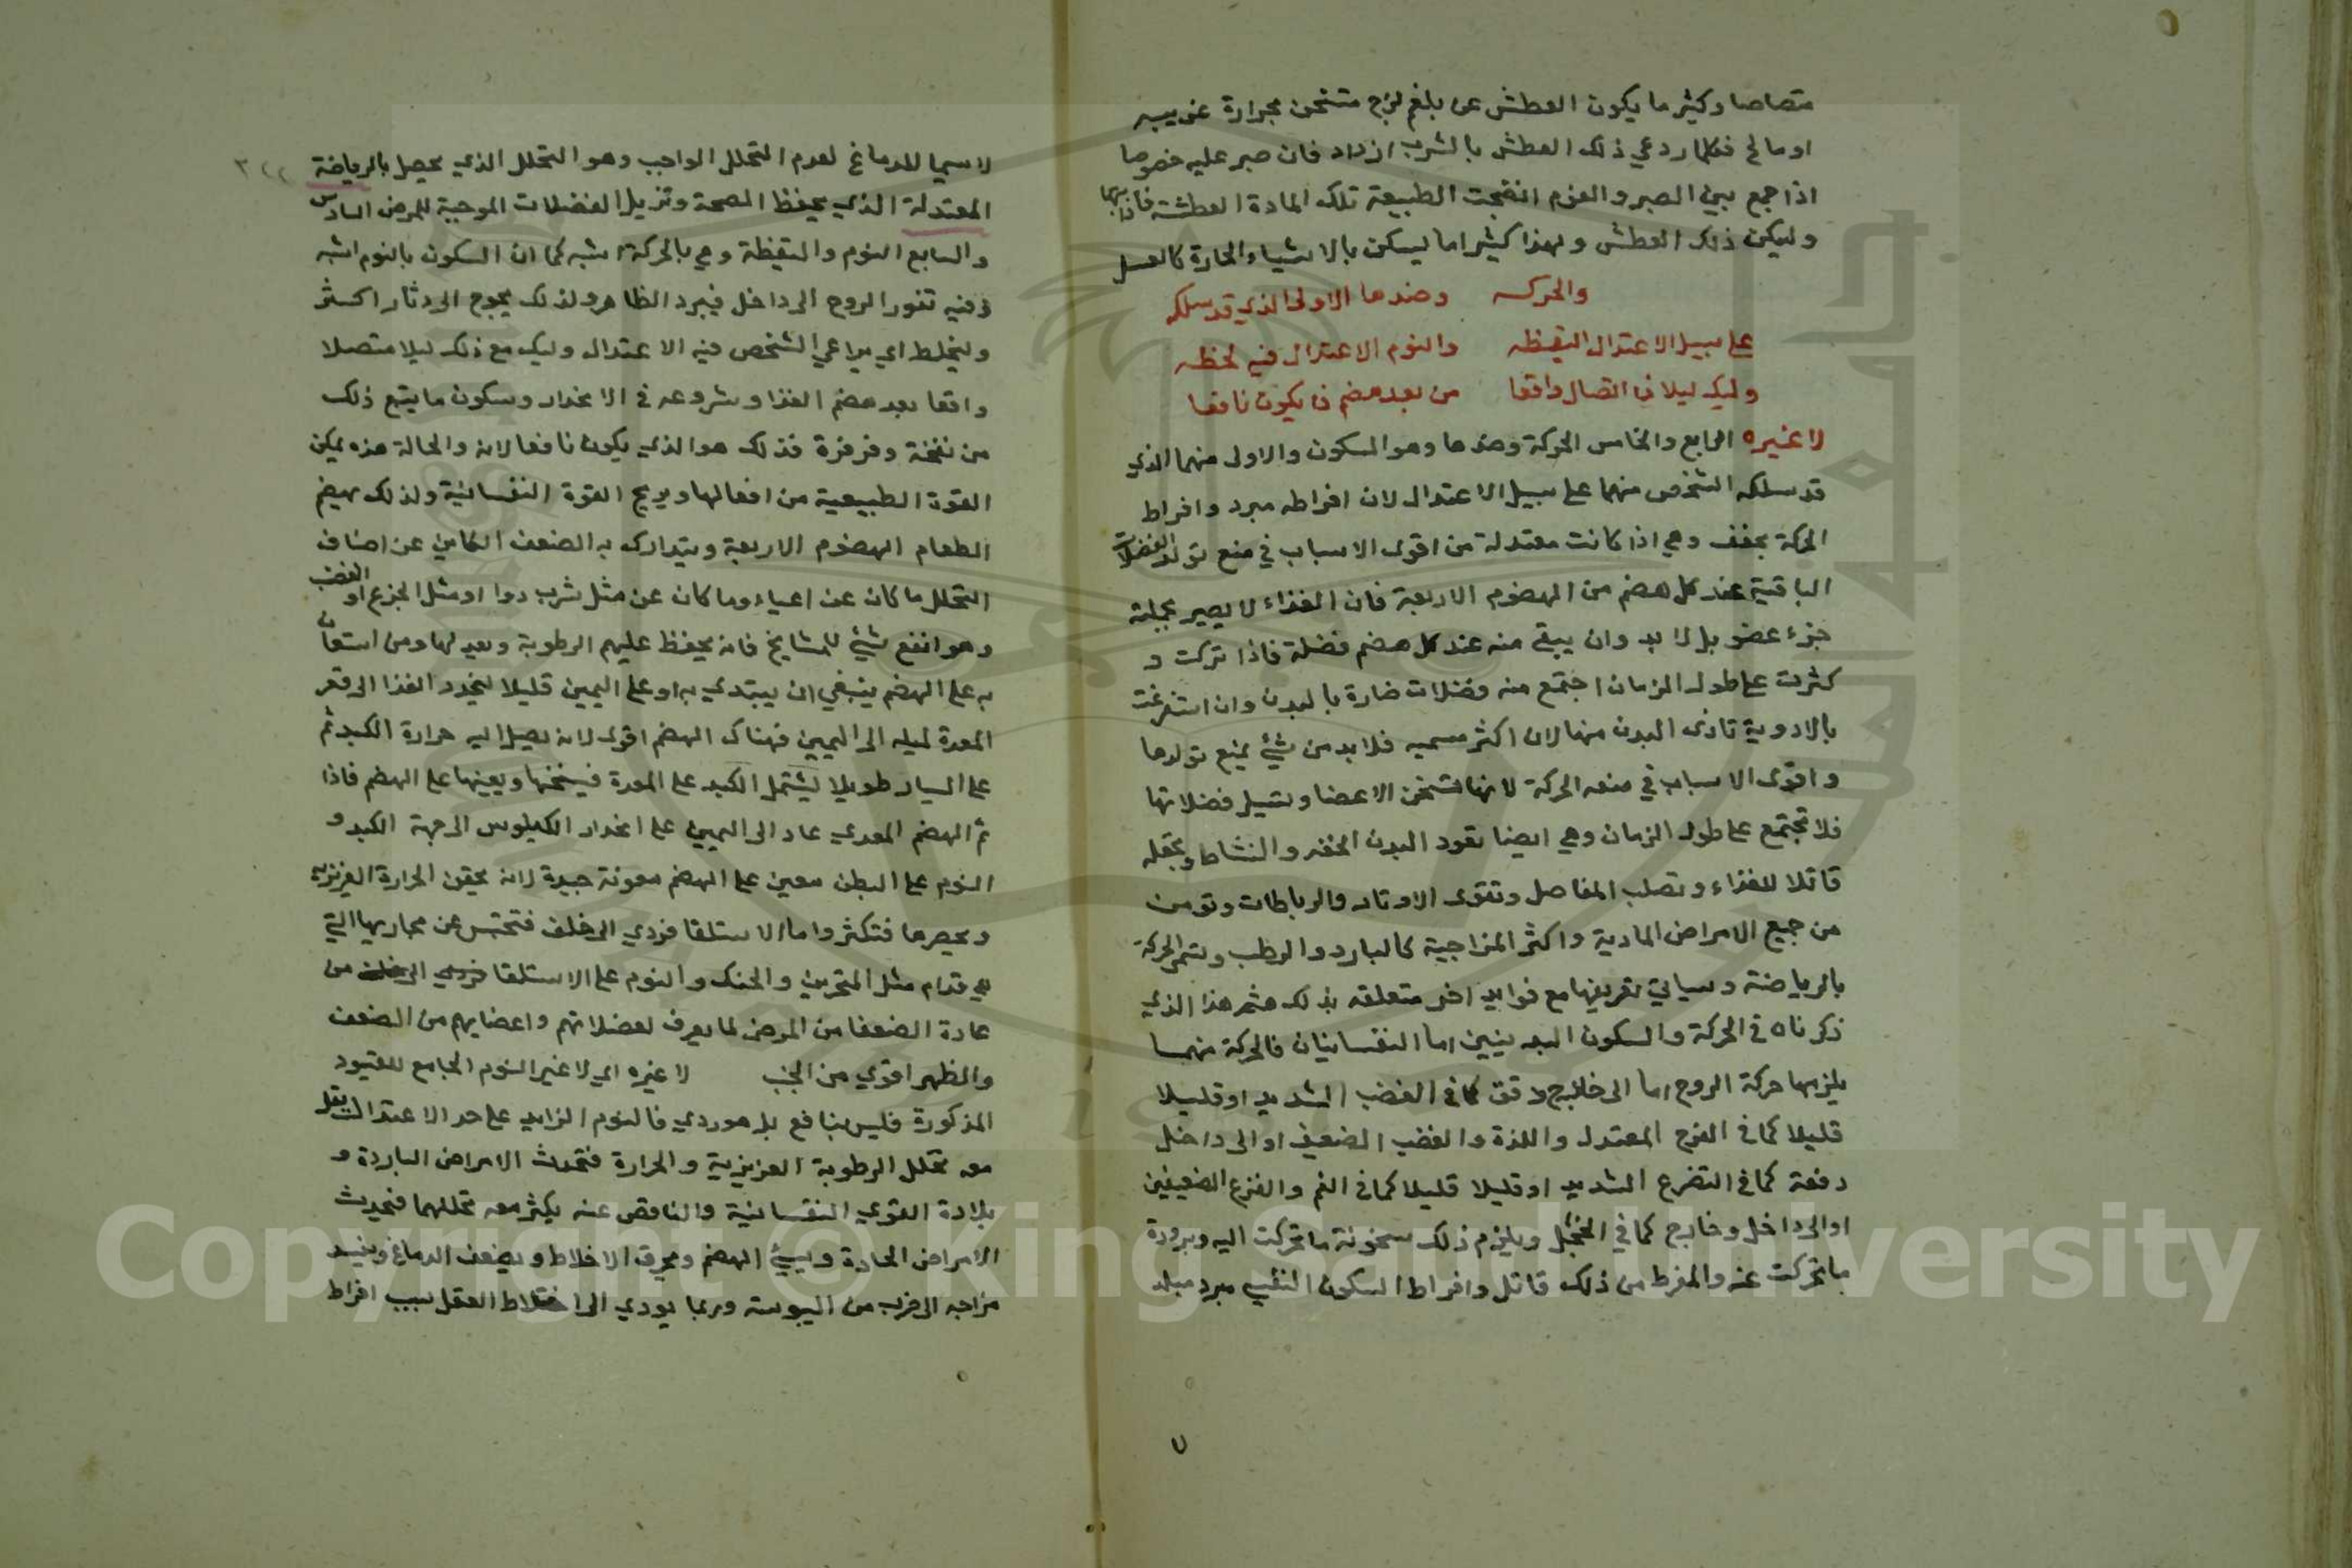 متصاصا وكثير ما يكون العطش عن بلغم لزج متسخن بحرارة غريبه
او مالح فكلما ردعي ذلك العطش بالشرب ازداد فان صبر عليه خصوصا
اذا جمع بين الصبر والعزم انضجت الطبيعة تلك المادة العطشة فاذابتها
وليكن ذلك العطش ولهذا كثيرا ما يسكن بالاشياء الحارة كالعسل
والحركه وضدها الاولى الذي قد سلكه
على سبيل الاعتدال اليقظه والنوم الاعتدال فيه لحظه
وليك ليلا في اتصال واقعا من بعد هضم ف يكون نافعا
لا غيره الرابع والخامس الحركة وضدها وهو السكون والاولى منهما الذي
قد سلكه الشخص منهما على سبيل الاعتدال لان افراطه مبرد وافراط
الحركة يجفف وهي اذا كانت معتدلة من اقوى الاسباب في منع تولد الفضلات
الباقية عند كل هضم من الهضوم الاربعة فان الغذاء لا يصير بجملته
جزء عضو بل لا بد وان يبقى منه عند كل هضم فضلة فاذا تركت و
كثرت على طول الزمان اجتمع منه فضلات ضارة بالبدن وان استفرغت
بالادوية تاذى البدن منها لان اكثر سميه فلا بد من شيء يمنع تولدها
واقوى الاسباب في منعه الحركة لانها تسخن الاعضا وتسيل فضلاتها
فلا تجتمع على طول الزمان وهي ايضا تعود البدن الخفه والنشاط وتجعله
قابلا للغذاء وتصلب المفاصل وتقوى الاوتار والرباطات وتومن
من جميع الامراض المادية واكثر المزاجية كالبارد والرطب وتسمى الحركة
بالرياضة وسياتي تعريفها مع فوايد اخر متعلقه بذلك هثم هذا الذي
ذكرناه في الحركة والسكون البدنيين اما النفسانيان فالحركة منهما
يلزمها حركة الروح اما الى خارج دفعة كما في الغضب الشديد او قليلا
قليلا كما في الفرح المعتدل واللذة والغضب الضعيف او الى داخل
دفعة كما في التفزع الشديد او قليلا قليلا كما في الغم والفزع الضعيفين
او الى داخل وخارج كما في الخجل ويلزم ذلك سخونة ما تحركت اليه وبرودة
ما تحركت عنه والمفرط من ذلك قاتل وافراط السكون النفسي مبرد مبلد
لا سيما للدماغ لعدم التحلل الواجب وهو التحلل الذي يحصل بالرياضة
المعتدلة الذي يحفظ الصحة وتزيل الفضلات الموجبة للمرض السادس
والسابع النوم واليقظة وهي بالحركة اشبه كما ان السكون بالنوم اشبه
ففيه تغور الروح الى داخل فيبرد الظاهر ولذلك يحوج الى دثار اكثر
وليخلط اي يراعي الشخص فيه الاعتدال وليك مع ذلك ليلا متصلا
واقعا بعد هضم الغذا وشروعه في الانحدار وسكون ما يتبع ذلك
من نفخة وقرقرة فذلك هو الذي يكون نافعا لانه والحالة هذه يمكن
القوة الطبيعية من افعالها ويريح القوة النفسانية ولذلك يهضم
الطعام الهضوم الاربعة ويتدارك به الضعف الكاين عن اصناف
التحلل ما كان عن اعياء وما كان عن مثل شرب دوا او مثل الجزع او الغضب
وهو انفع شيء للمشايخ فانه يحفظ عليهم الرطوبة ويعيدها ومن استعان
به على الهضم ينبغي ان يبتدي به او على اليمين قليلا لينحدر الغذا الى قعر
المعدة لميله الى اليمين فهناك الهضم اقوى لانه يصل اليه حرارة الكبد ثم
على اليسار طويلا ليشتمل الكبد على المعدة فيسخنها ويعينها على الهضم فاذا
تم الهضم المعدي عاد الى اليمين على انحدار الكيلوس الى جهة الكبد و
النوم على البطن معين على الهضم معونة جيدة لانه يحقن الحرارة الغريزيه
ويحصرها فتكثر واما الاستلقا فردي الى خلف فتحتبس عن مجاريها التي
هي قدام مثل المنخرين والحنك والنوم على الاستلقا من
عادة الضعفا من المرضى لما يعرف لعضلاتهم واعضايهم من الضعف
والظهر اقوي من الجنب لا غيره اي لا غير النوم الجامع للقيود
المذكورة فليس بنافع بل هو ردي فالنوم الزايد على حد الاعتدال يقل
معه تحلل الرطوبة الغريزية والحرارة فتحدث الامراض الباردة و
بلادة القوي النفسانية والناقص عنه يكثر معه تحللهما فيحدث
الامراض الحادة ويسيء الهضم ويحرق الاخلاط ويضعف الدماغ ويفسد
مزاجه الى ضرب من اليبوسة وربما يودي الى اختلاط العقل بسبب افراط
Copyright © King Saud University